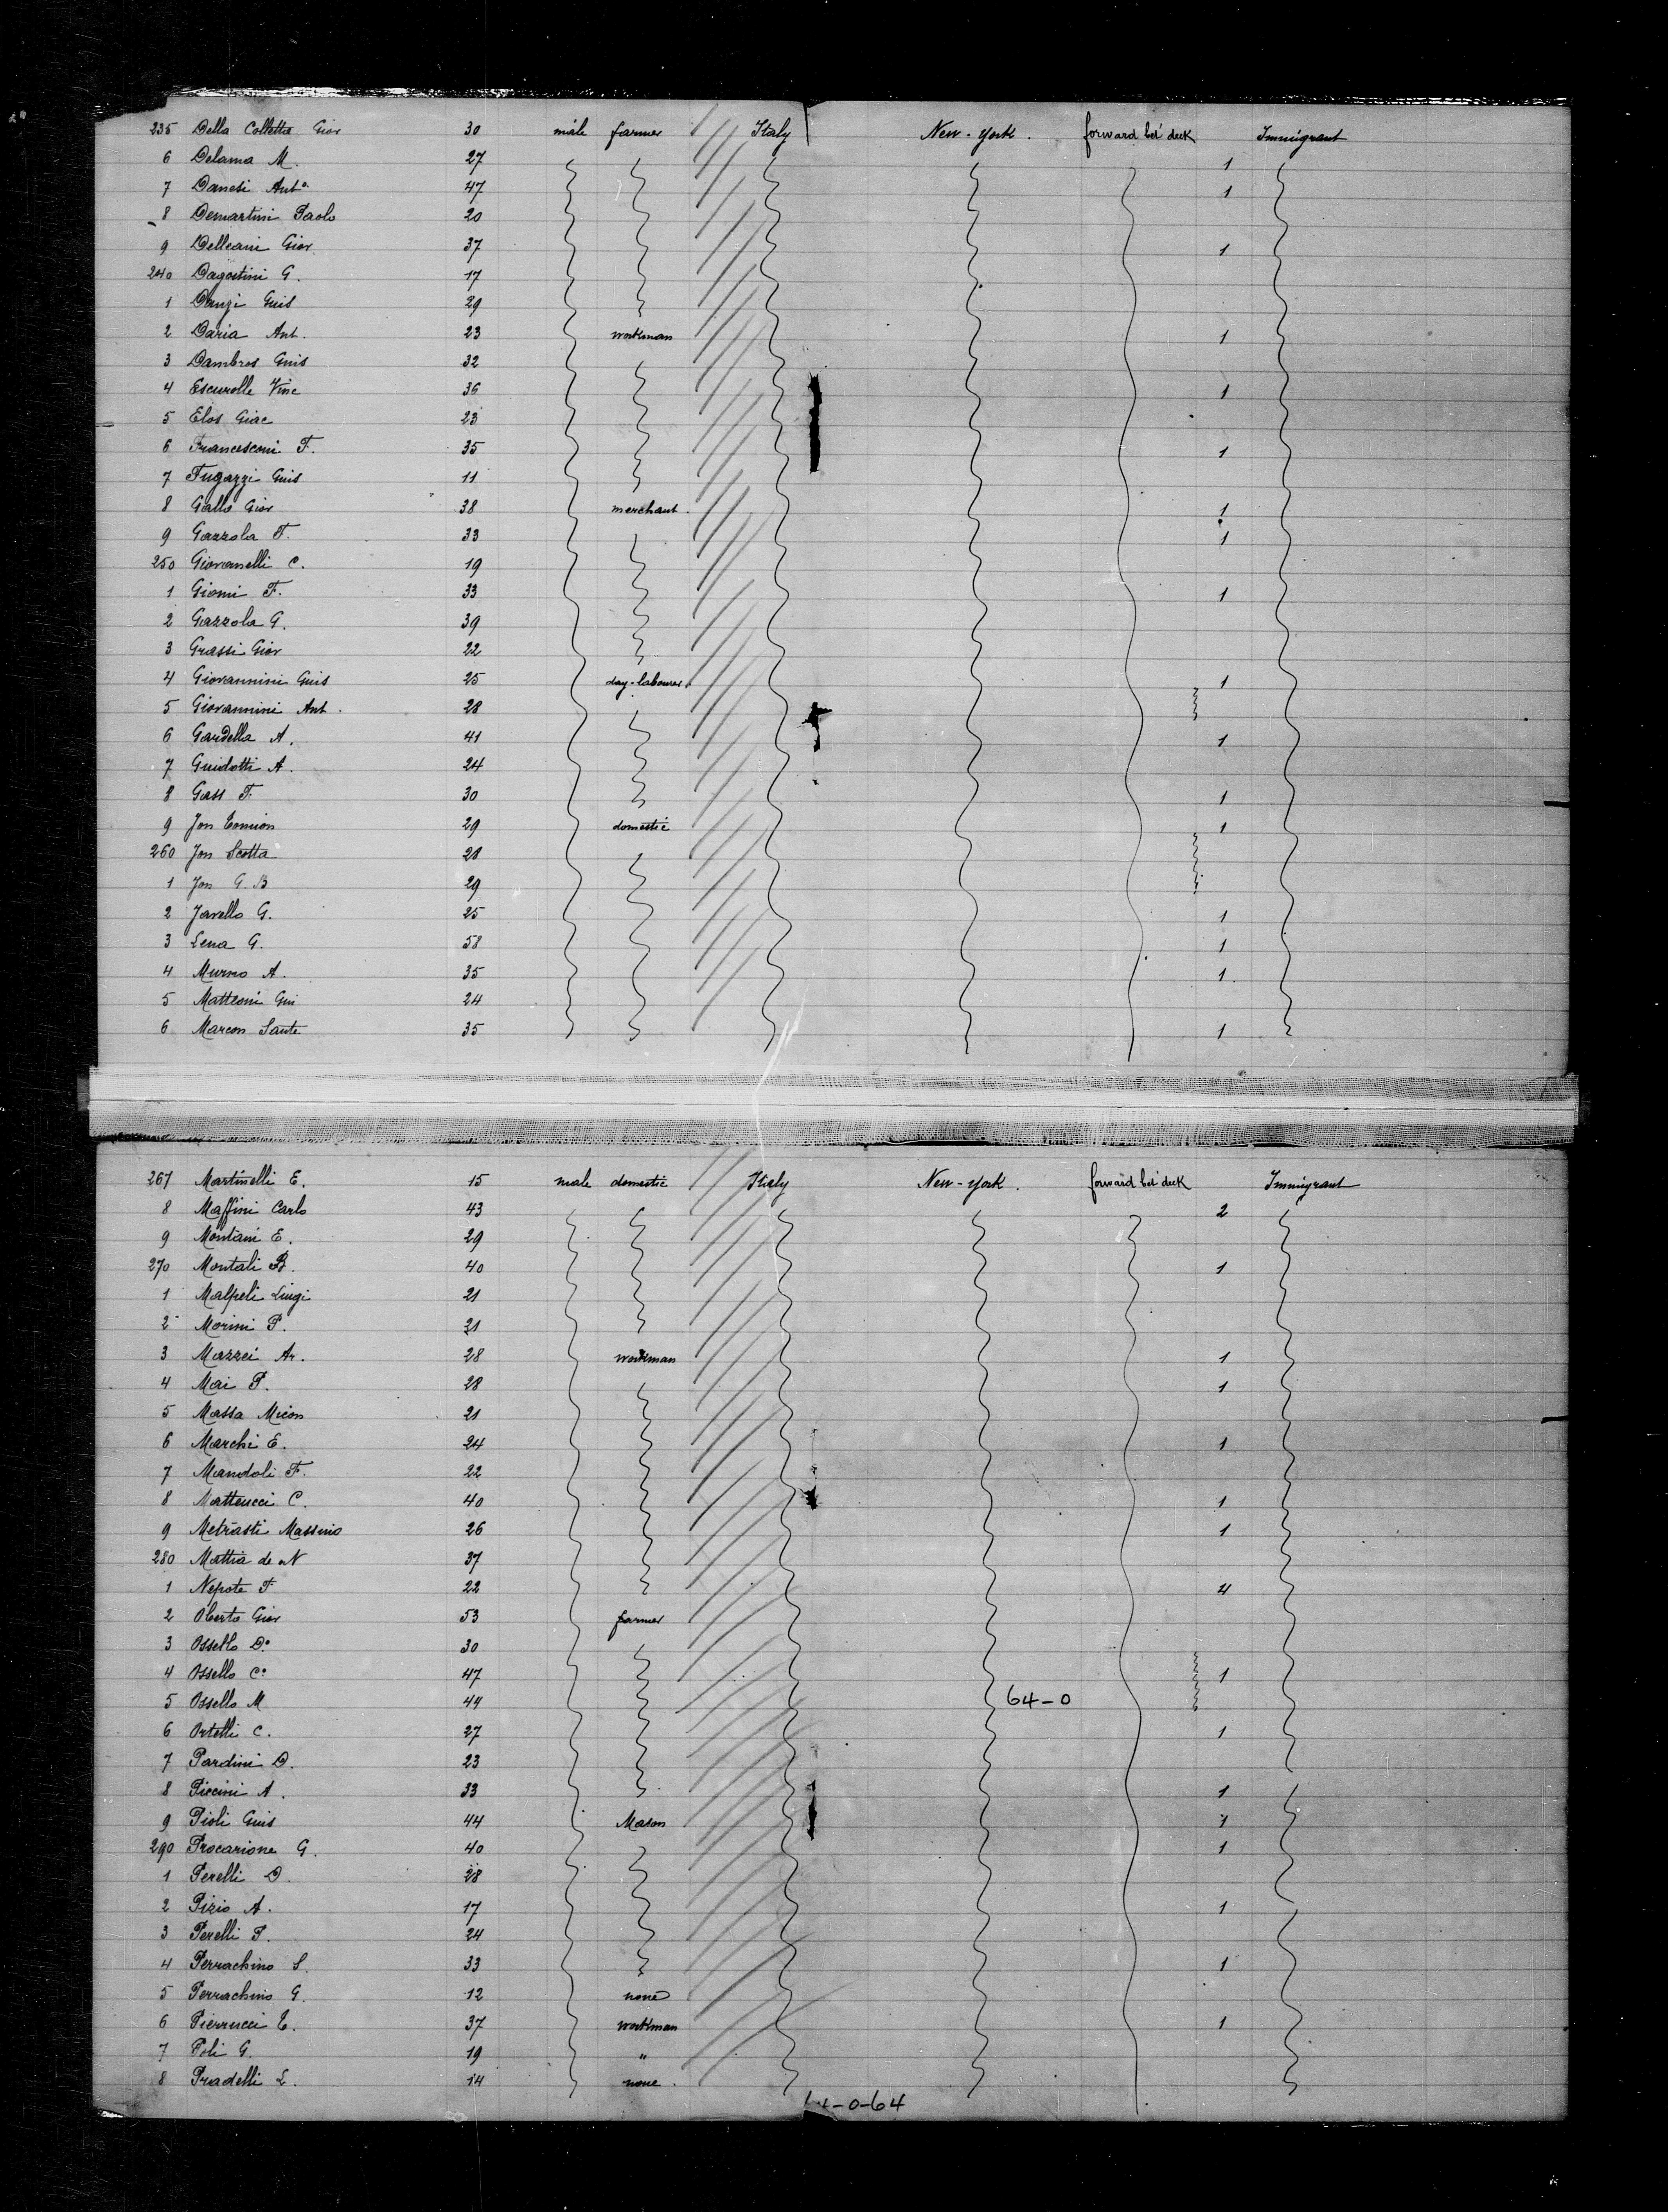 235 Della Colletta Giov 30 male farmer Italy New-York. forward bet' deck Immigrant
6 Delama M. 27 1
7 Danesi Ant° 47 1
8 Demartini Paolo 20
9 Delleani Giov 37 1
240 Dagostini G. 17
1 Danzi Guis 29
2 Daria Ant. 23 workman 1
3 Dambros Guis 32
4 Escurolle Vinc 36 1
5 Elos Giac 23
6 Francesconi F. 35 1
7 Fugazzi Guis 11
8 Gallo Giov 38 merchant. 1
9 Gazzola F. 33 1
250 Giovanelli C. 19
1 Gionni F. 33 1
2 Gazzola G. 39
3 Grassi Giov 22
4 Giovannini Guis 25 day-labourer 1
5 Giovannini Ant. 28
6 Gardella A. 41 1
7 Guidotti A. 24
8 Gass F. 30 1
9 Jon 29 domestic 1
260 Jon Scotta 28
1 Jon G. B 29
2 Javello G. 25 1
3 Lena G. 58 1
4 Murno A. 35 1
5 Matteoni Gui 24
6 Marcon Sante 35 1
267 Martinelli E. 15 male domestic Italy New-York. forward bet' deck Immigrant
8 Maffini Carlo 43 2
9 Montani E. 29
270 Montali B. 40 1
1 Malpeli Luigi 21
2 Morini P. 21
3 Mazzei Ar. 28 workman 1
4 Mai P. 28 1
5 Massa Micon 21
6 Marchi E. 24 1
7 Mandoli F. 22
8 Matteucci C. 40 1
9 Metrasti Massimo 26 1
280 Mattia de N 37
1 Nepote F 22 4
2 Oberto Giov 53 farmer
3 Ossello D° 30
4 Ossello C° 47 1
5 Ossello M 44 64-0
6 Ortelli C. 27 1
7 Pardini D. 23
8 Piccini A. 33 1
9 Pioli Guis 44 Mason 1
290 Procarione G. 40 1
1 Perelli D. 28
2 Pizio A. 17 1
3 Perelli P. 24
4 Perrachino S. 33 1
5 Perrachino G. 12 none
6 Pierrucci E. 37 workman 1
7 Poli G. 19 "
8 Pradelli L. 14 none.
64-0-64